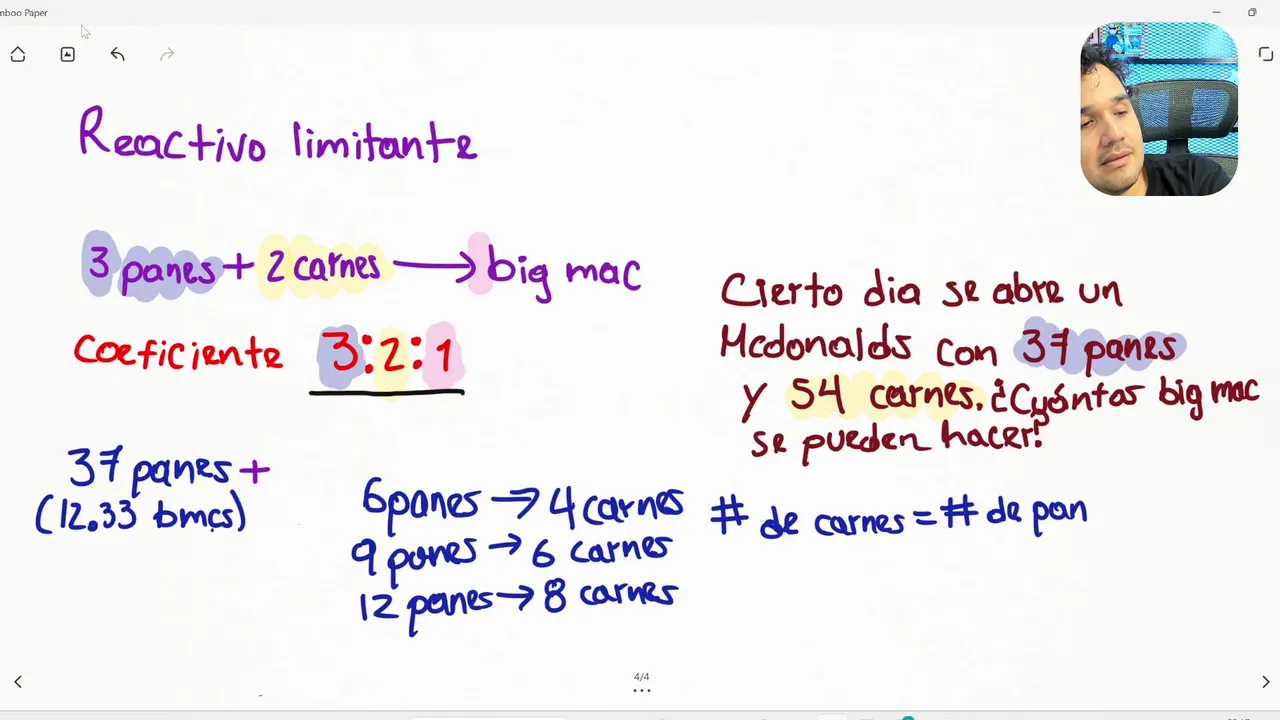 mboo Paper
Reactivo limitante
3 panes + 2 carnes → big mac
coeficiente 3:2:1
Cierto dia se abre un
Mcdonalds con 37 panes
y 54 carnes. ¿Cuántas big mac
se pueden hacer?
37 panes +
(12.33 bmcs)
6 panes → 4 carnes
9 panes → 6 carnes
12 panes → 8 carnes
# de carnes = # de pan
4/4